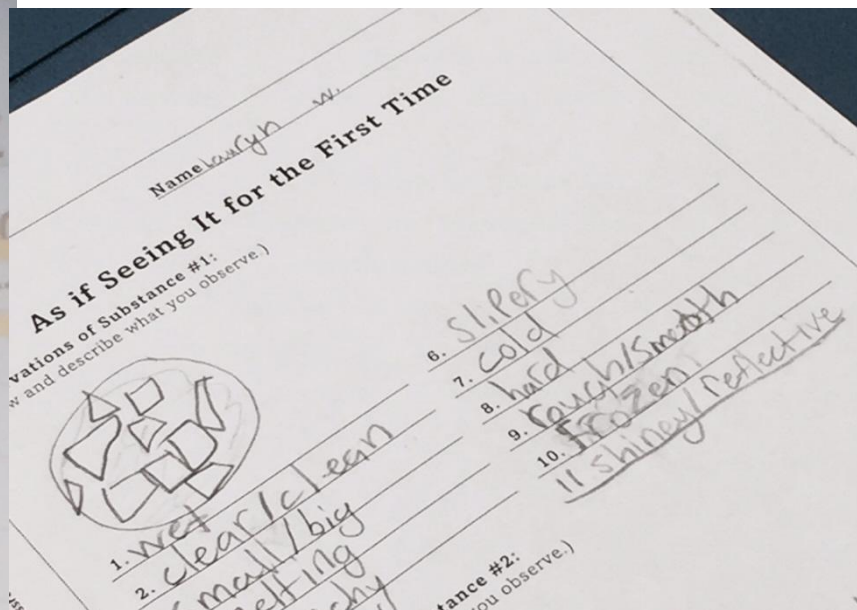 Name Lauryn W.
As if Seeing It for the First Time
vations of Substance #1:
w and describe what you observe.)
1. wet
2. clear/clean
small/big
melting
6. slipery
7. cold
8. hard
9. rough/smooth
10. frozen
11 shiney/reflective
tance #2:
you observe.)